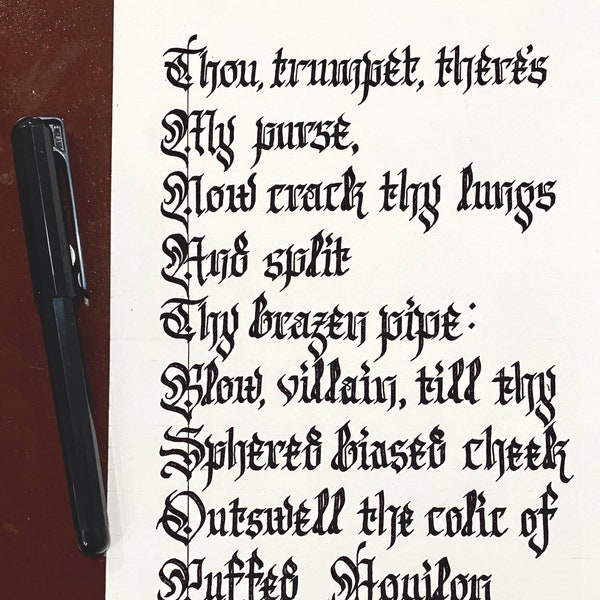 Thou, trumpet, there's
My purse,
Now crack thy lungs
And split
Thy brazen pipe:
Blow, villain, till thy
Sphered biased cheek
Outswell the colic of
Puffed Aquilon